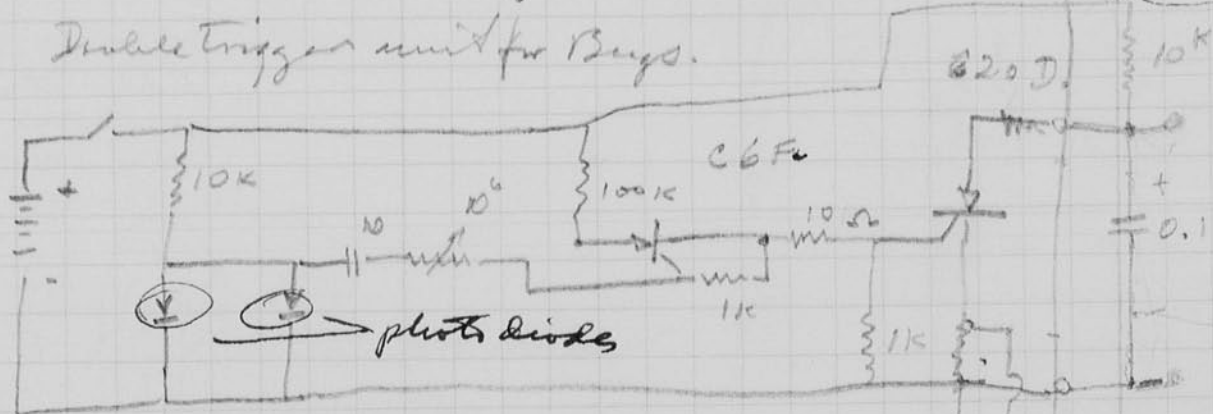 Double Trigger unit for Bugs.
620 D.
10K
+
10K
C6F
100K
10
10⁶
10 Ω
+
0.1
-
1K
photo diodes
1K